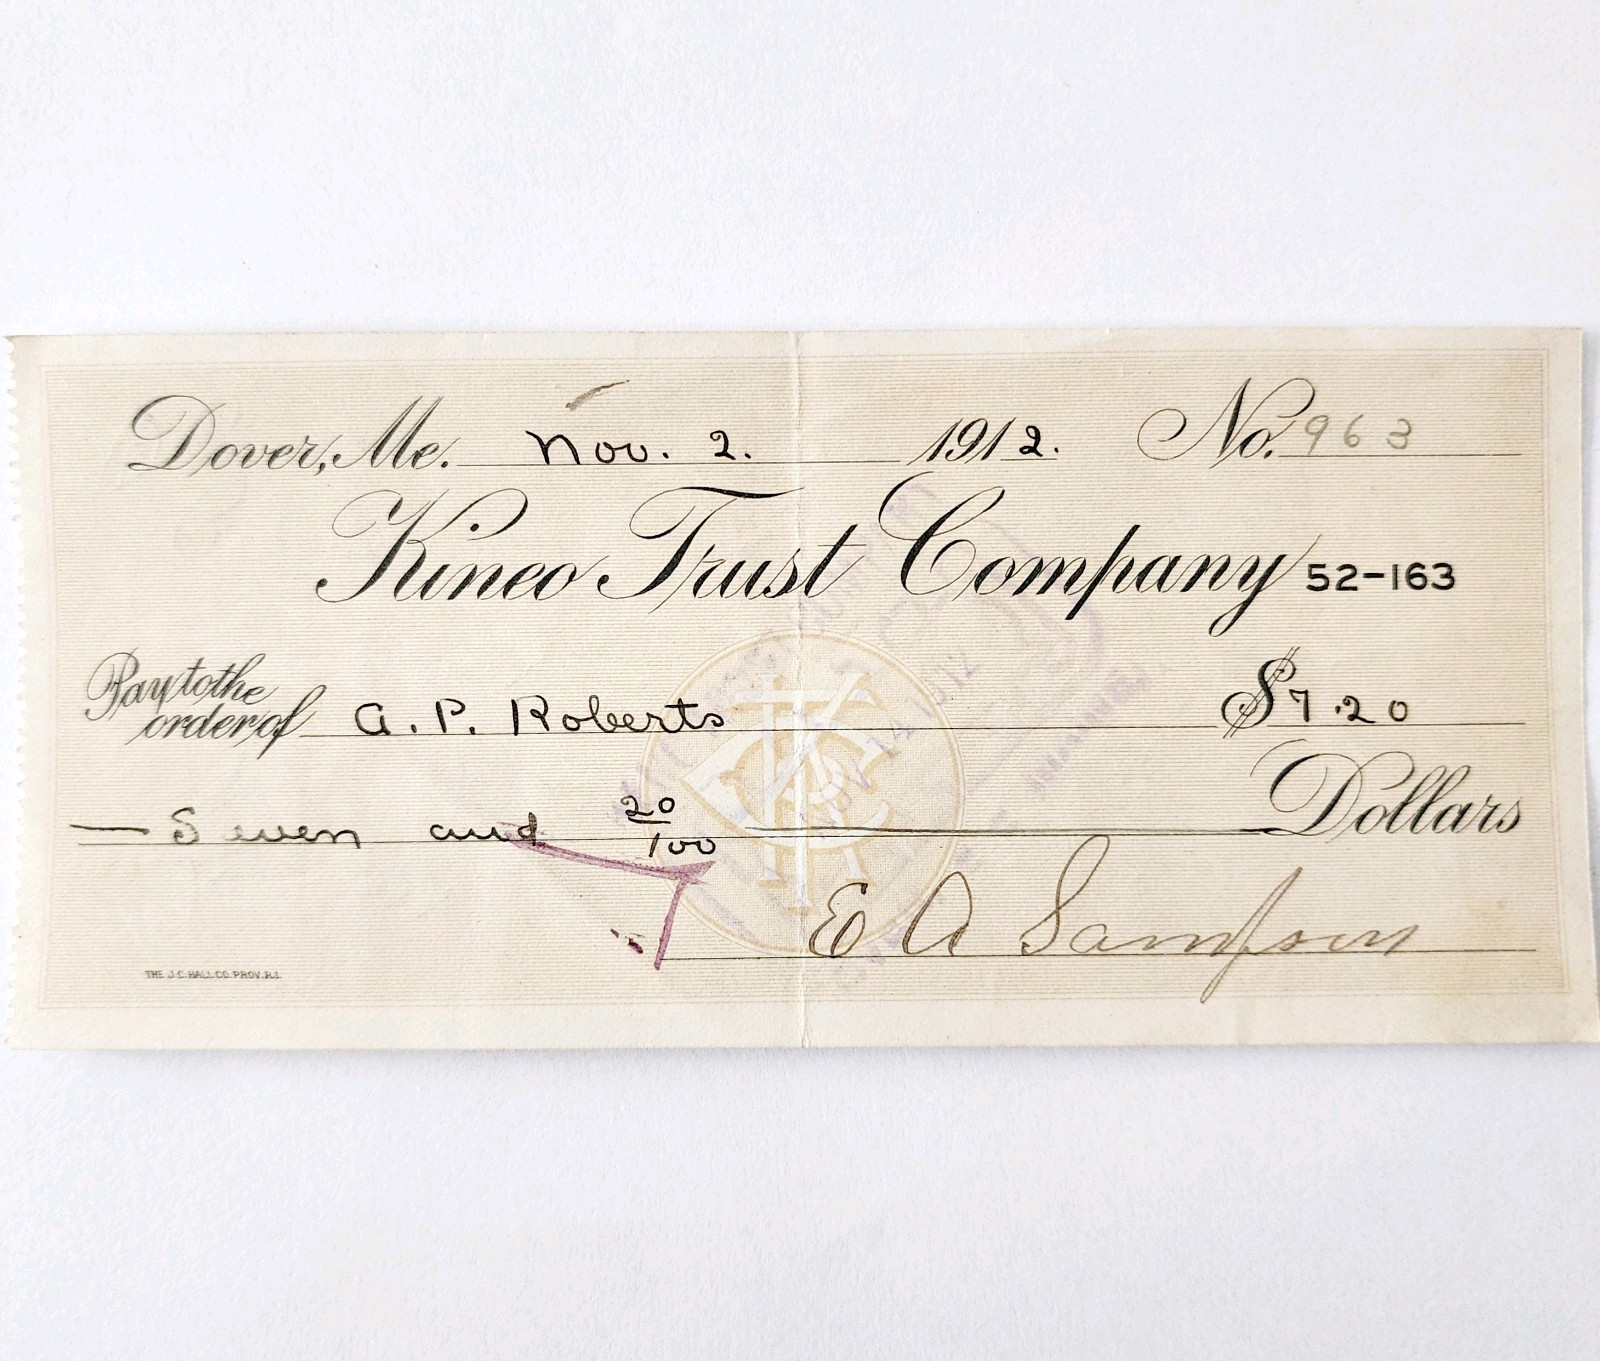 Dover, Me. Nov. 2. 1912. No. 963
Kineo Trust Company 52-163
Pay to the
order of A. P. Roberts $7.20
Seven and 20/100 Dollars
E A Sampson
THE J.C. HALL CO. PROV. R.I.
NOV 14 1912